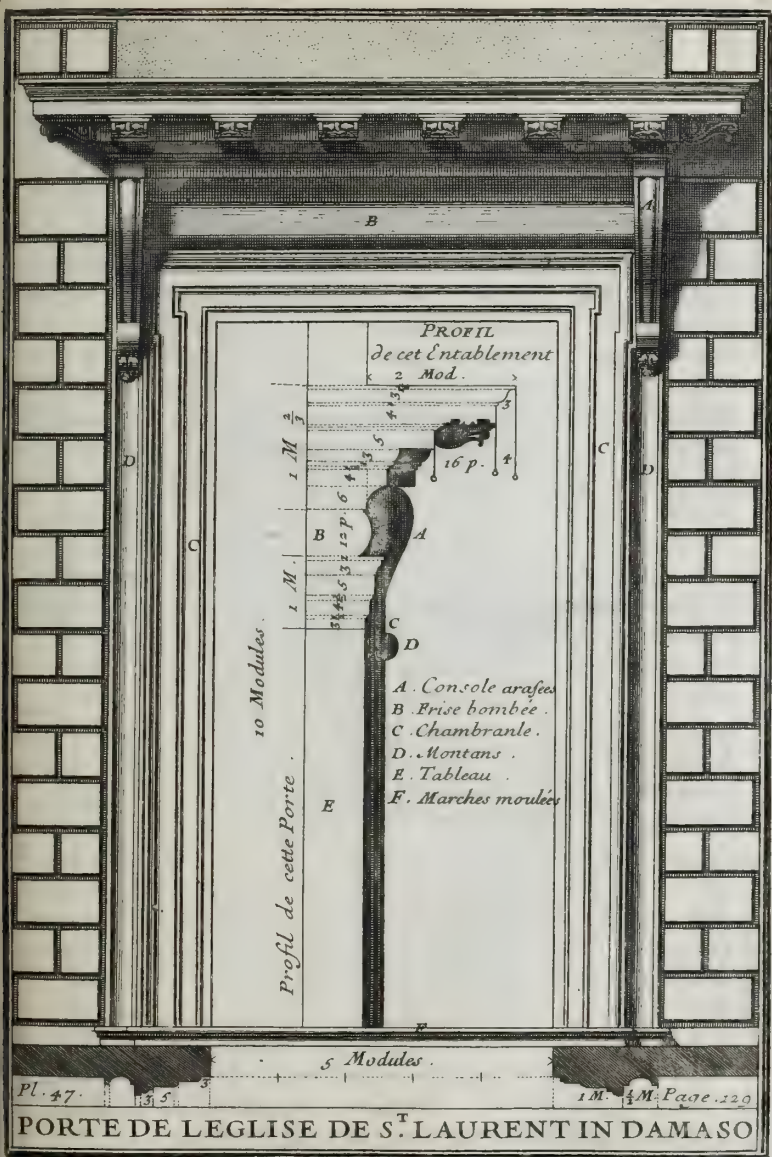 A
B
PROFIL
de cet Entablement
2 Mod.
3
4
5
16 p.
4
1 M 2/3
6
B
12 p.
A
1 M.
C
D
10 Modules.
Profil de cette Porte.
E
A. Console arasées
B. Frise bombée.
C. Chambranle.
D. Montans.
E. Tableau.
F. Marches moulées
D
C
C
D
F
5 Modules.
Pl. 47.
3 5 3
1 M. ½ M. Page. 129
PORTE DE LEGLISE DE S.T LAURENT IN DAMASO